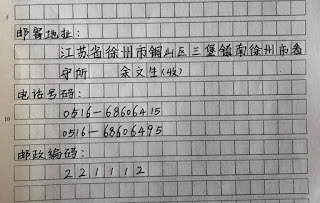 5
邮寄地址:
江苏省徐州市铜山区三堡镇南徐州市看
守所 余文生(收)
电话号码:
0516-68606415
10
0516-68606495
邮政编码:
221112